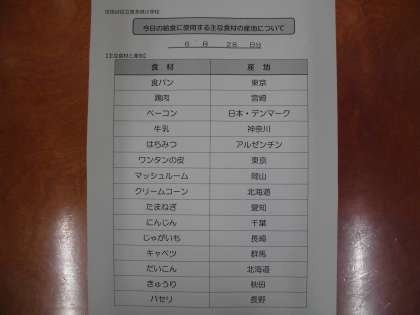 今日の給食に使用する主な食材の産地について
6 月 28 日分
【主な食材と産地】
食 材 産 地
食パン 東京
鶏肉 宮崎
ベーコン 日本・デンマーク
牛乳 神奈川
はちみつ アルゼンチン
ワンタンの皮 東京
マッシュルーム 岡山
クリームコーン 北海道
たまねぎ 愛知
にんじん 千葉
じゃがいも 長崎
キャベツ 群馬
だいこん 北海道
きゅうり 秋田
パセリ 長野